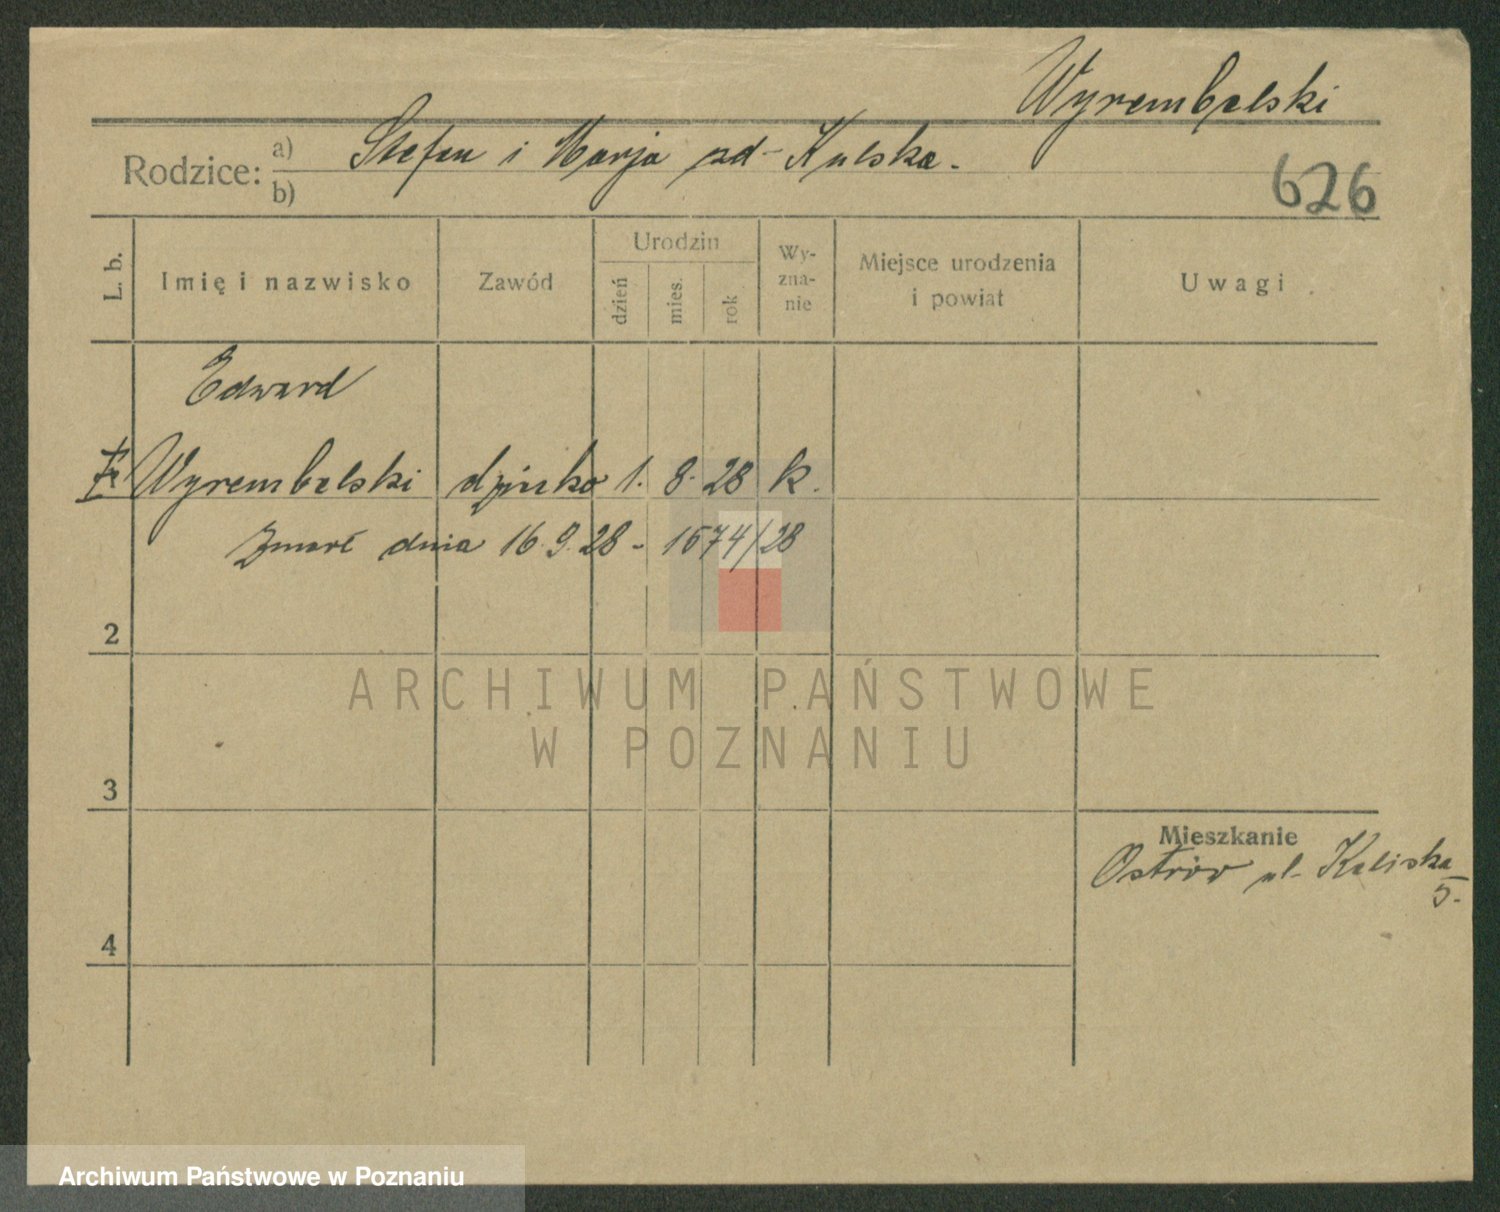 Wyrembelski
Rodzice: a) Stefan i Marja zd- Kulska.
b)
626
L. b.
Imię i nazwisko
Zawód
Urodzin
dzień
mies.
rok
Wy-
zna-
nie
Miejsce urodzenia
i powiat
Uwagi
Edward
Wyrembelski dziecko 1. 8. 28 k.
Zmarł dnia 16.9.28 - 1574/28
2
ARCHIWUM PAŃSTWOWE
W POZNANIU
3
Mieszkanie
Ostrów ul. Kaliska
5.
4
Archiwum Państwowe w Poznaniu